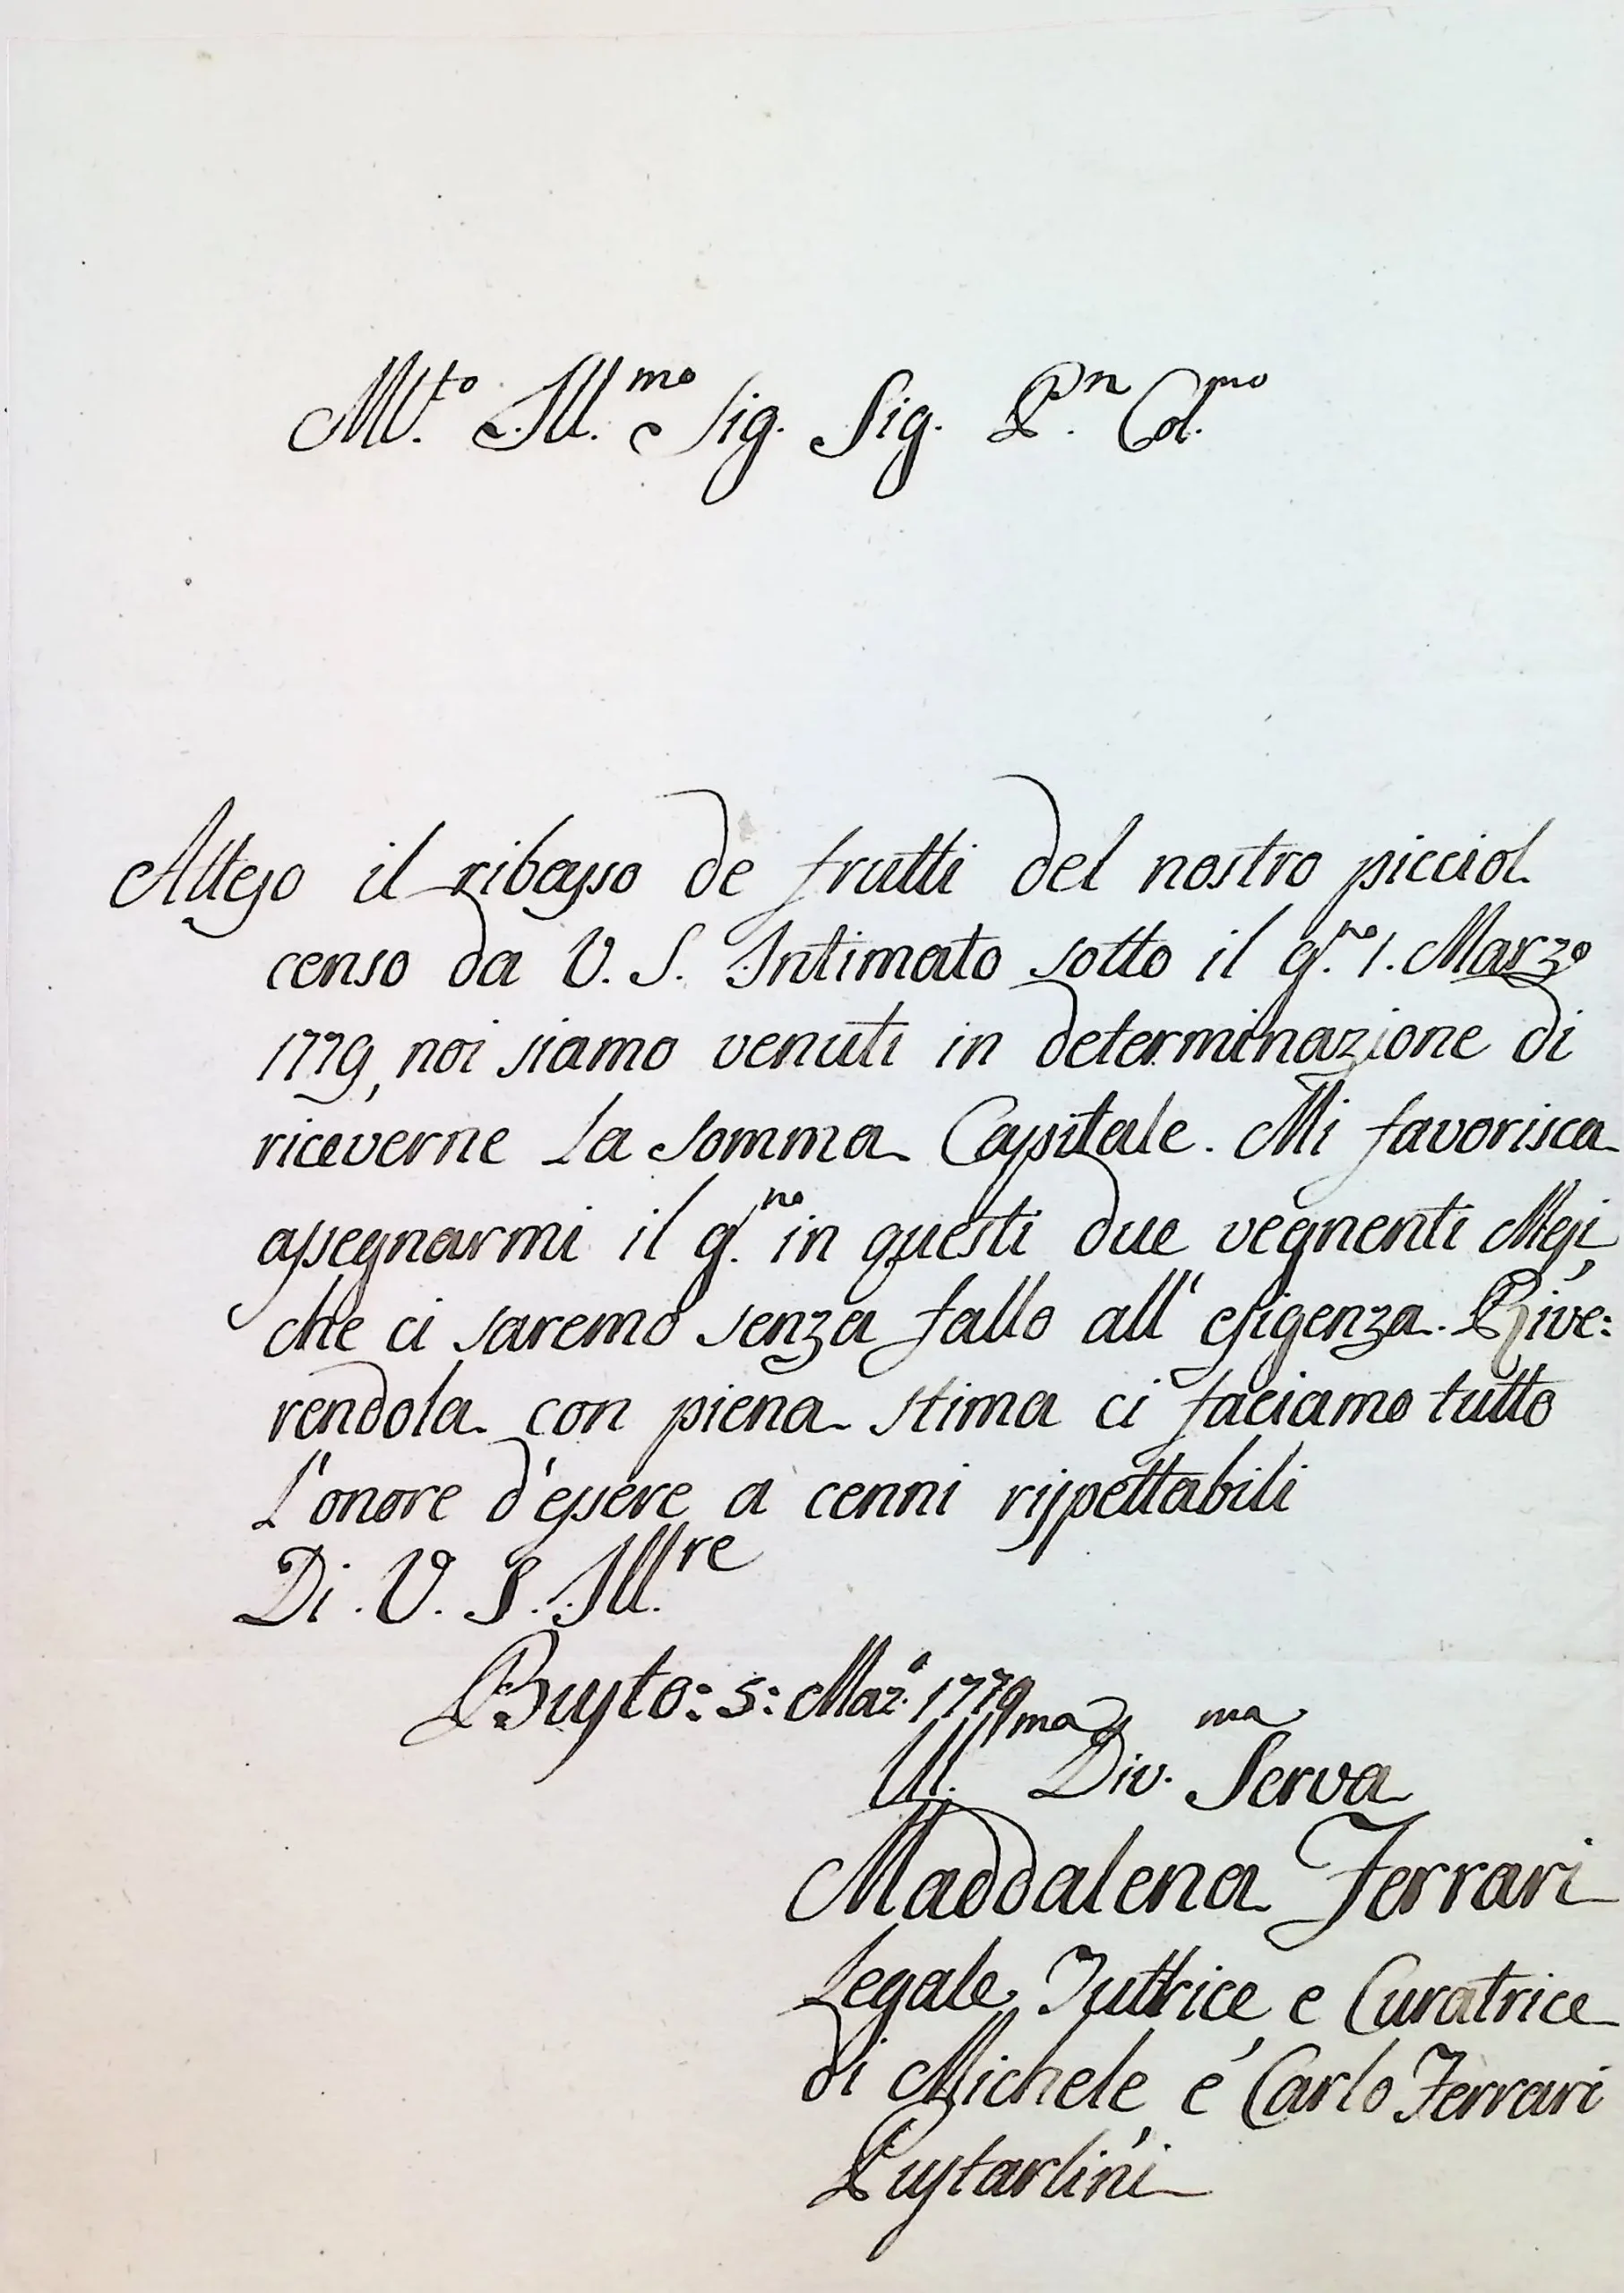 Mt.to Ill.mo Sig. Sig. P.n Col.mo
Atteso il ribasso de frutti del nostro picciol
censo da V. S. Intimato sotto il g.no 1. Marzo
1779, noi siamo venuti in determinazione di
riceverne La somma Capitale. Mi favorisca
assegnarmi il g.no in questi due vegnenti Mesi,
che ci saremo senza fallo all' esigenza. Rive:
rendola con piena stima ci faciamo tutto
L'onore d'essere a cenni rispettabili
Di. V. S. Ill.re
Busto: 5: Mar.o 1779
U.ma Div.ma Serva
Maddalena Ferrari
Legale Tuttrice, e Curatrice
di Michele, é Carlo Ferrari
Pustarlini